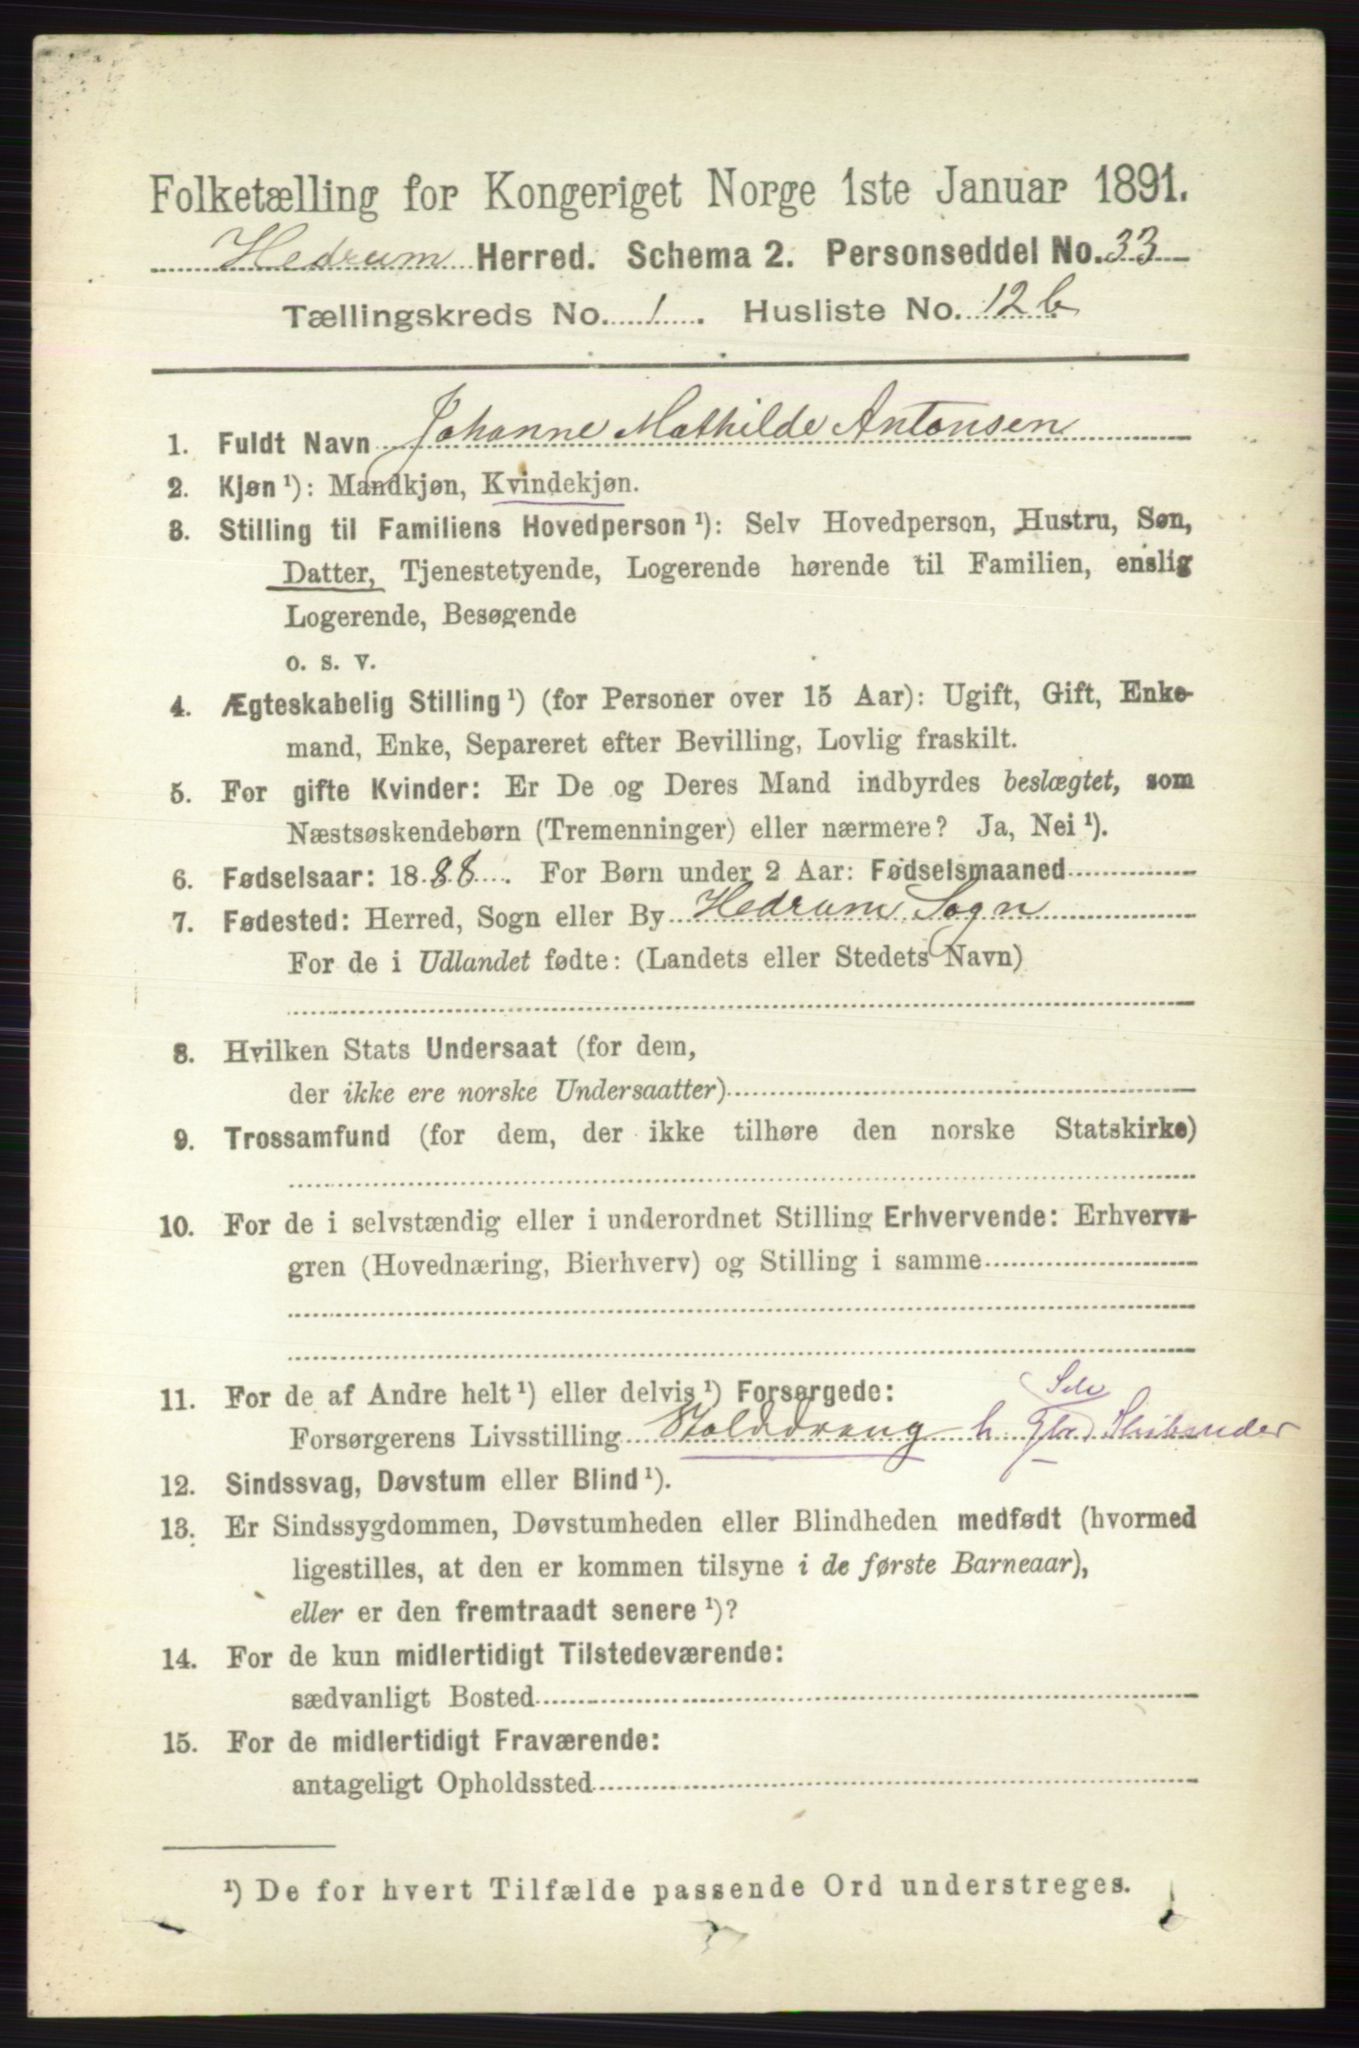 Folketælling for Kongeriget Norge 1ste Januar 1891.
Hedrum Herred. Schema 2. Personseddel No. 33
Tællingskreds No. 1. Husliste No. 12 b
1. Fuldt Navn Johanne Mathilde Antonsen
2. Kjøn ¹): Mandkjøn, Kvindekjøn.
3. Stilling til Familiens Hovedperson ¹): Selv Hovedperson, Hustru, Søn,
Datter, Tjenestetyende, Logerende hørende til Familien, enslig
Logerende, Besøgende
o. s. v.
4. Ægteskabelig Stilling ¹) (for Personer over 15 Aar): Ugift, Gift, Enke-
mand, Enke, Separeret efter Bevilling, Lovlig fraskilt.
5. For gifte Kvinder: Er De og Deres Mand indbyrdes beslægtet, som
Næstsøskendebørn (Tremenninger) eller nærmere? Ja, Nei ¹).
6. Fødselsaar: 1888. For Børn under 2 Aar: Fødselsmaaned
7. Fødested: Herred, Sogn eller By Hedrum Sogn
For de i Udlandet fødte: (Landets eller Stedets Navn)
8. Hvilken Stats Undersaat (for dem,
der ikke ere norske Undersaatter)
9. Trossamfund (for dem, der ikke tilhøre den norske Statskirke)
10. For de i selvstændig eller i underordnet Stilling Erhvervende: Erhvervs-
gren (Hovednæring, Bierhverv) og Stilling i samme
11. For de af Andre helt ¹) eller delvis ¹) Forsørgede:
Selv
Forsørgerens Livsstilling Stalddreng h.
12. Sindssvag, Døvstum eller Blind ¹).
13. Er Sindssygdommen, Døvstumheden eller Blindheden medfødt (hvormed
ligestilles, at den er kommen tilsyne i de første Barneaar),
eller er den fremtraadt senere ¹)?
14. For de kun midlertidigt Tilstedeværende:
sædvanligt Bosted
15. For de midlertidigt Fraværende:
antageligt Opholdssted
¹) De for hvert Tilfælde passende Ord understreges.